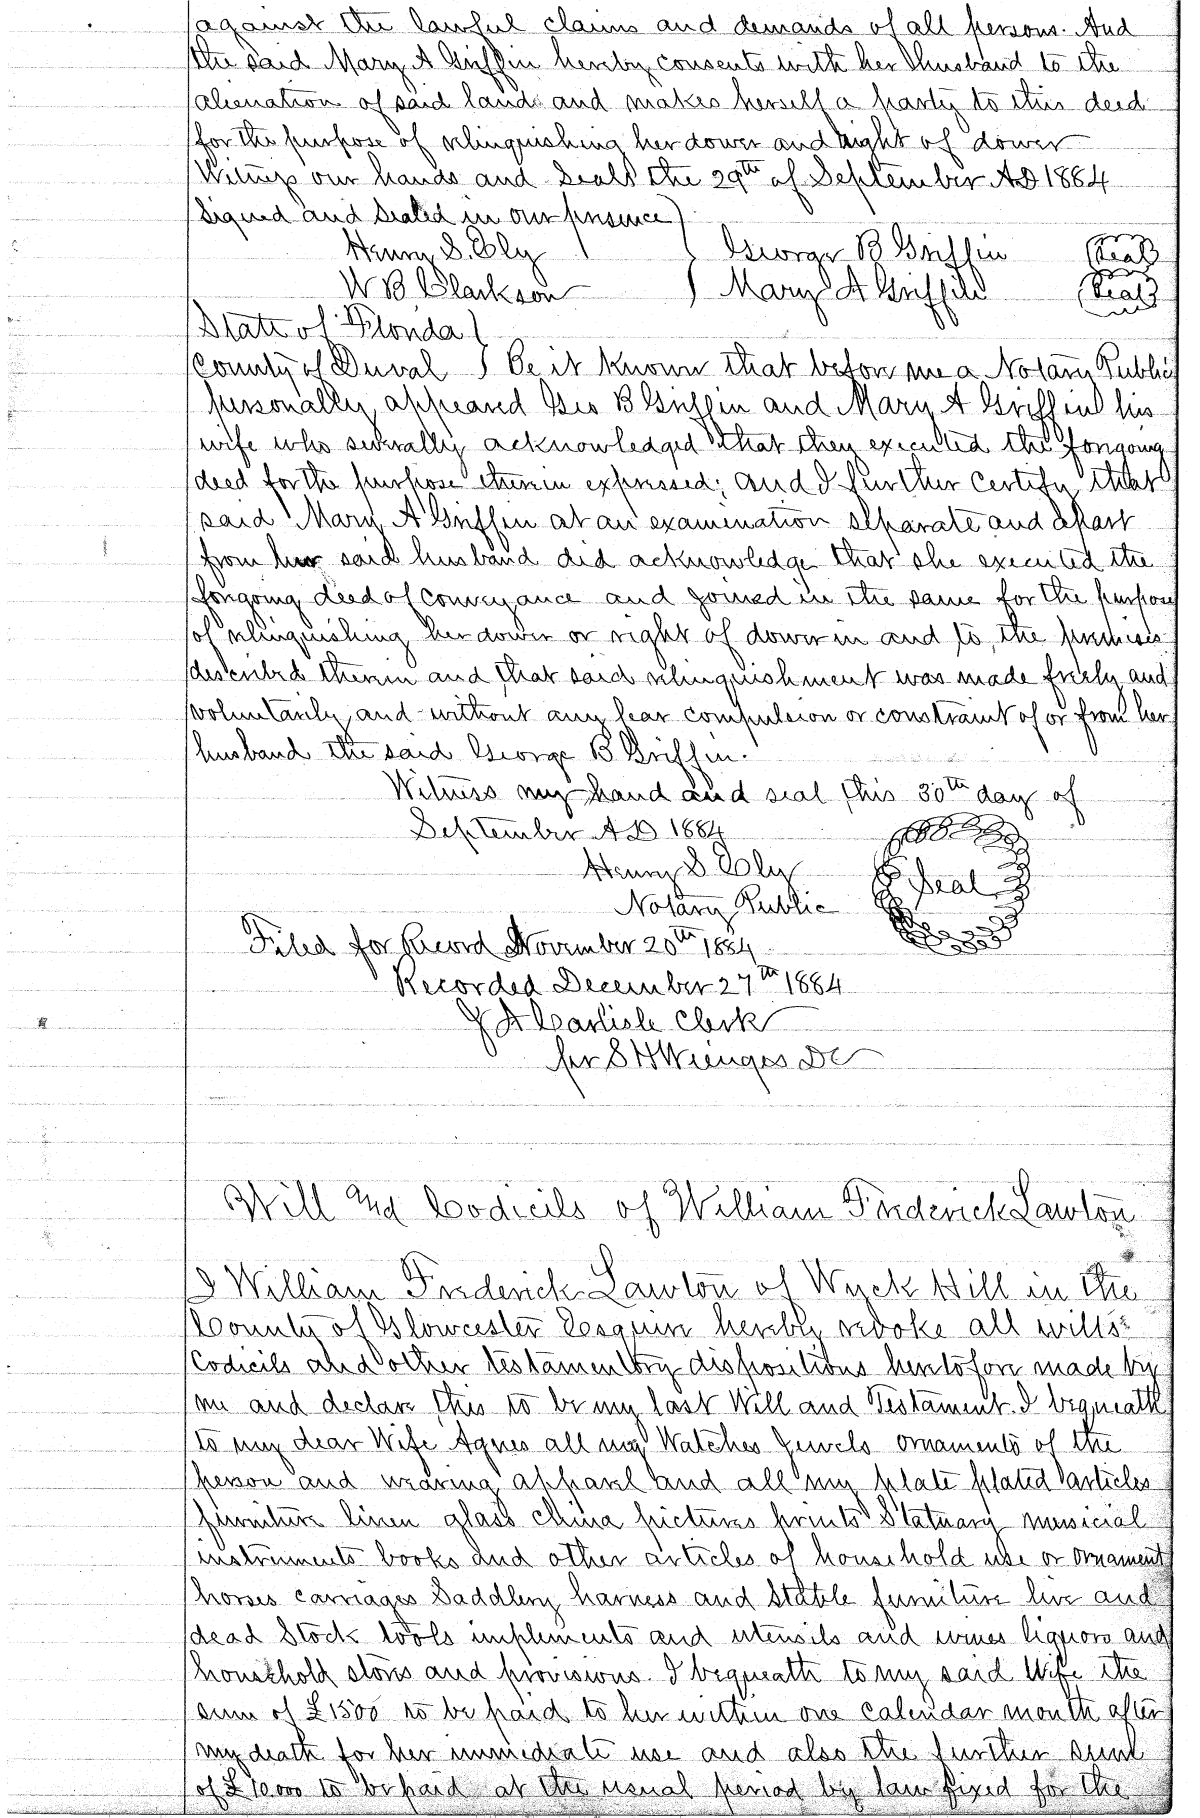 against the lawful claims and demands of all persons. And
the said Mary A Griffin hereby consents with her husband to the
alienation of said land and makes herself a party to this deed
for the purpose of relinquishing her dower and right of dower
Witness our hands and Seals the 29th of September AD 1884
Signed and Sealed in our presence)
Henry S. Ely ) George B Griffin (Seal)
W B Clarkson ) Mary A Griffin (Seal)
State of Florida )
County of Duval ) Be it known that before me a Notary Public
personally appeared Geo B Griffin and Mary A Griffin his
wife who severally acknowledged that they executed the forgoing
deed for the purpose therein expressed; and I further certify that
said Mary A Griffin at an examenation separate and apart
from her said husband did acknowledge that she executed the
forgoing deed of conveyance and joined in the same for the purpose
of relinquishing her dower or right of dower in and to, the premises
described therein and that said relinquishment was made freely and
voluntarily and without any fear compulsion or constraint of or from her
husband the said George B Griffin.
Witness my hand and seal this 30th day of
September AD 1884
Henry S Ely
Notary Public Seal
Filed for Record November 20th 1884
Recorded December 27th 1884
J A Carlisle Clerk
per S H Wienges DC
Will and Codicils of William Frederick Lawton
I William Frederick Lawton of Wyck Hill in the
County of Glowcester Esquire hereby revoke all wills
Codicils and other testamentory dispositions heretofore made by
me and declare this to be my last Will and Testament. I bequeath
to my dear Wife Agnes all my Watches Jewels ornaments of the
person and wearing apparel and all my plate plated articles
furniture linen glass china pictures prints Statuary musicial
instruments books and other articles of household use or ornament
horses carriages Saddlery harness and stable furniture live and
dead Stock tools implements and utensils and wines liquors and
household stores and provisions. I bequeath to my said Wife the
sum of £1500 to be paid to her within one calendar month after
my death for her immediate use and also the further sum
of £10000 to be paid at the usual period by law fixed for the